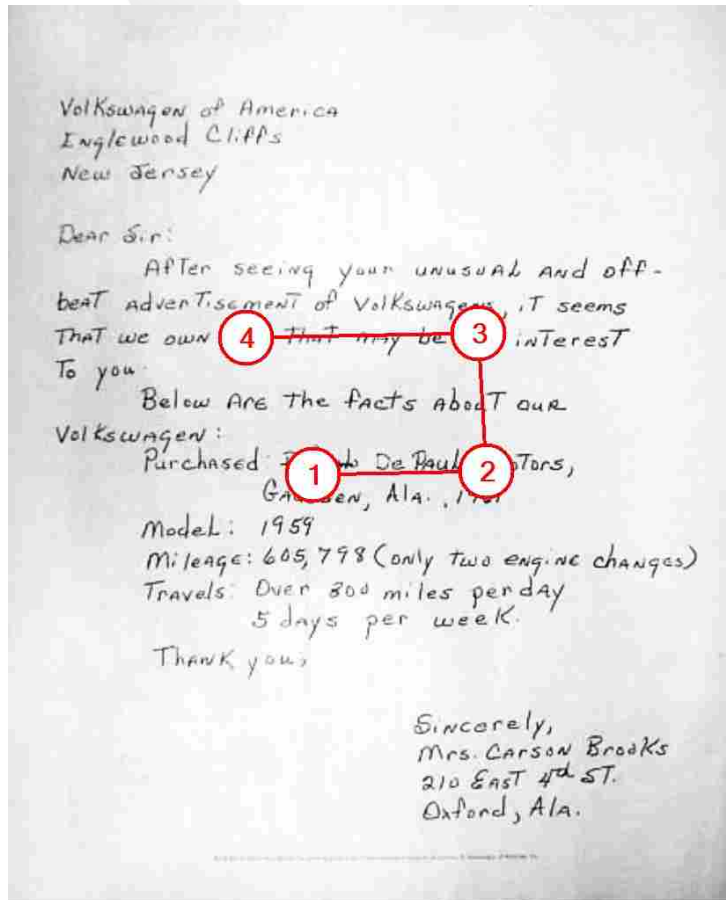 Volkswagen of America
Inglewood Cliffs
New Jersey
Dear Sir:
After seeing your unusual and off-
beat advertisement of Volkswagens, it seems
That we own 4 that may be 3 interest
To you.
Below are the facts about our
Volkswagen:
Purchased: 1 De Paul 2
Ala.,
Model: 1959
Mileage: 605,798 (only two engine changes)
Travels: Over 300 miles per day
5 days per week.
Thank you,
Sincerely,
Mrs. Carson Brooks
210 East 4th St.
Oxford, Ala.